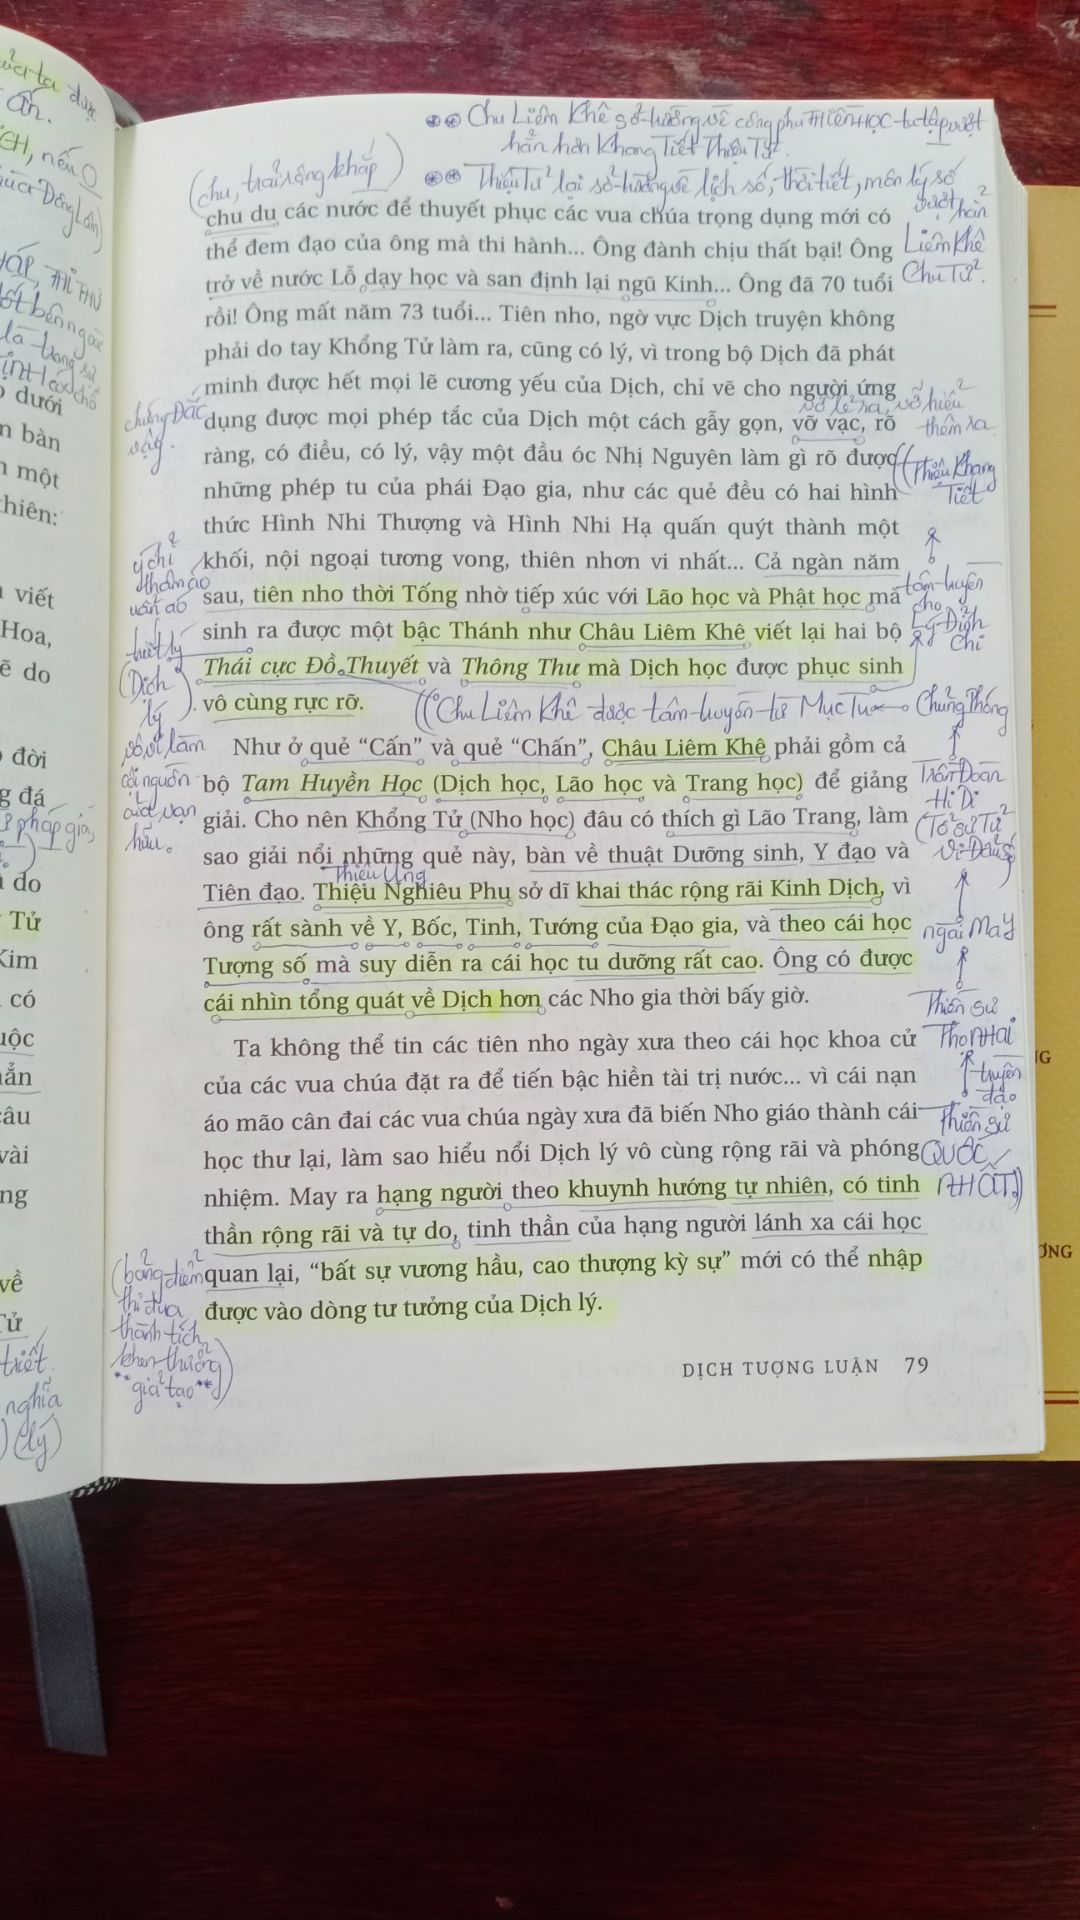 Chu Liêm Khê sở-trường về công phu THIỀN HỌC-tu tập vượt
hẳn hơn Khang Tiết Thiệu Tử.
Thiệu Tử lại sở-trường về lịch số, thời tiết, môn lý số
vượt hẳn
Liêm Khê
Chu Tử.
(chu, trải rộng khắp)
chu du các nước để thuyết phục các vua chúa trọng dụng mới có
thể đem đạo của ông mà thi hành... Ông đành chịu thất bại! Ông
trở về nước Lỗ dạy học và san định lại ngũ Kinh... Ông đã 70 tuổi
rồi! Ông mất năm 73 tuổi... Tiên nho, ngờ vực Dịch truyện không
phải do tay Khổng Tử làm ra, cũng có lý, vì trong bộ Dịch đã phát
minh được hết mọi lẽ cương yếu của Dịch, chỉ vẽ cho người ứng
dụng được mọi phép tắc của Dịch một cách gẫy gọn, vỡ vạc, rõ
ràng, có điều, có lý, vậy một đầu óc Nhị Nguyên làm gì rõ được
những phép tu của phái Đạo gia, như các quẻ đều có hai hình
thức Hình Nhi Thượng và Hình Nhi Hạ quấn quýt thành một
khối, nội ngoại tương vong, thiên nhơn vi nhất... Cả ngàn năm
sau, tiên nho thời Tống nhờ tiếp xúc với Lão học và Phật học mà
sinh ra được một bậc Thánh như Châu Liêm Khê viết lại hai bộ
Thái cực Đồ Thuyết và Thông Thư mà Dịch học được phục sinh
vô cùng rực rỡ.
(Chu Liêm Khê được tâm-truyền từ Mục Tu
Như ở quẻ “Cấn” và quẻ “Chấn”, Châu Liêm Khê phải gồm cả
bộ Tam Huyền Học (Dịch học, Lão học và Trang học) để giảng
giải. Cho nên Khổng Tử (Nho học) đâu có thích gì Lão Trang, làm
sao giải nổi những quẻ này, bàn về thuật Dưỡng sinh, Y đạo và
Thiệu Ung
Tiên đạo. Thiệu Nghiêu Phu sở dĩ khai thác rộng rãi Kinh Dịch, vì
ông rất sành về Y, Bốc, Tinh, Tướng của Đạo gia, và theo cái học
Tượng số mà suy diễn ra cái học tu dưỡng rất cao. Ông có được
cái nhìn tổng quát về Dịch hơn các Nho gia thời bấy giờ.
Ta không thể tin các tiên nho ngày xưa theo cái học khoa cử
của các vua chúa đặt ra để tiến bậc hiền tài trị nước... vì cái nạn
áo mão cân đai các vua chúa ngày xưa đã biến Nho giáo thành cái
học thư lại, làm sao hiểu nổi Dịch lý vô cùng rộng rãi và phóng
nhiệm. May ra hạng người theo khuynh hướng tự nhiên, có tinh
thần rộng rãi và tự do, tinh thần của hạng người lánh xa cái học
quan lại, “bất sự vương hầu, cao thượng kỳ sự” mới có thể nhập
được vào dòng tư tưởng của Dịch lý.
DỊCH TƯỢNG LUẬN 79
ý chỉ
thâm áo
(Dịch
lý)
cội nguồn
thêm ra
(Thiệu Khang
Tiết
tâm-truyền
cho
Lý Đỉnh
Chi
Chủng Phóng
Trần Đoàn
Hi Di
ngài May
Thiền sư
THỌ NHAI
truyền
đạo
Thiền sư
QUỐC
NHẤT)
(bảng-điểm
thi đua
thành tích
khen-thưởng
**giả tạo**)
dưới
n bàn
một
hiên:
viết
Hoa,
ẽ do
đời
g đá
do
Tử
Kim
có
uộc
ẳn
câu
vài
ng
về
Tử
tiết.
nghĩa
(lý)